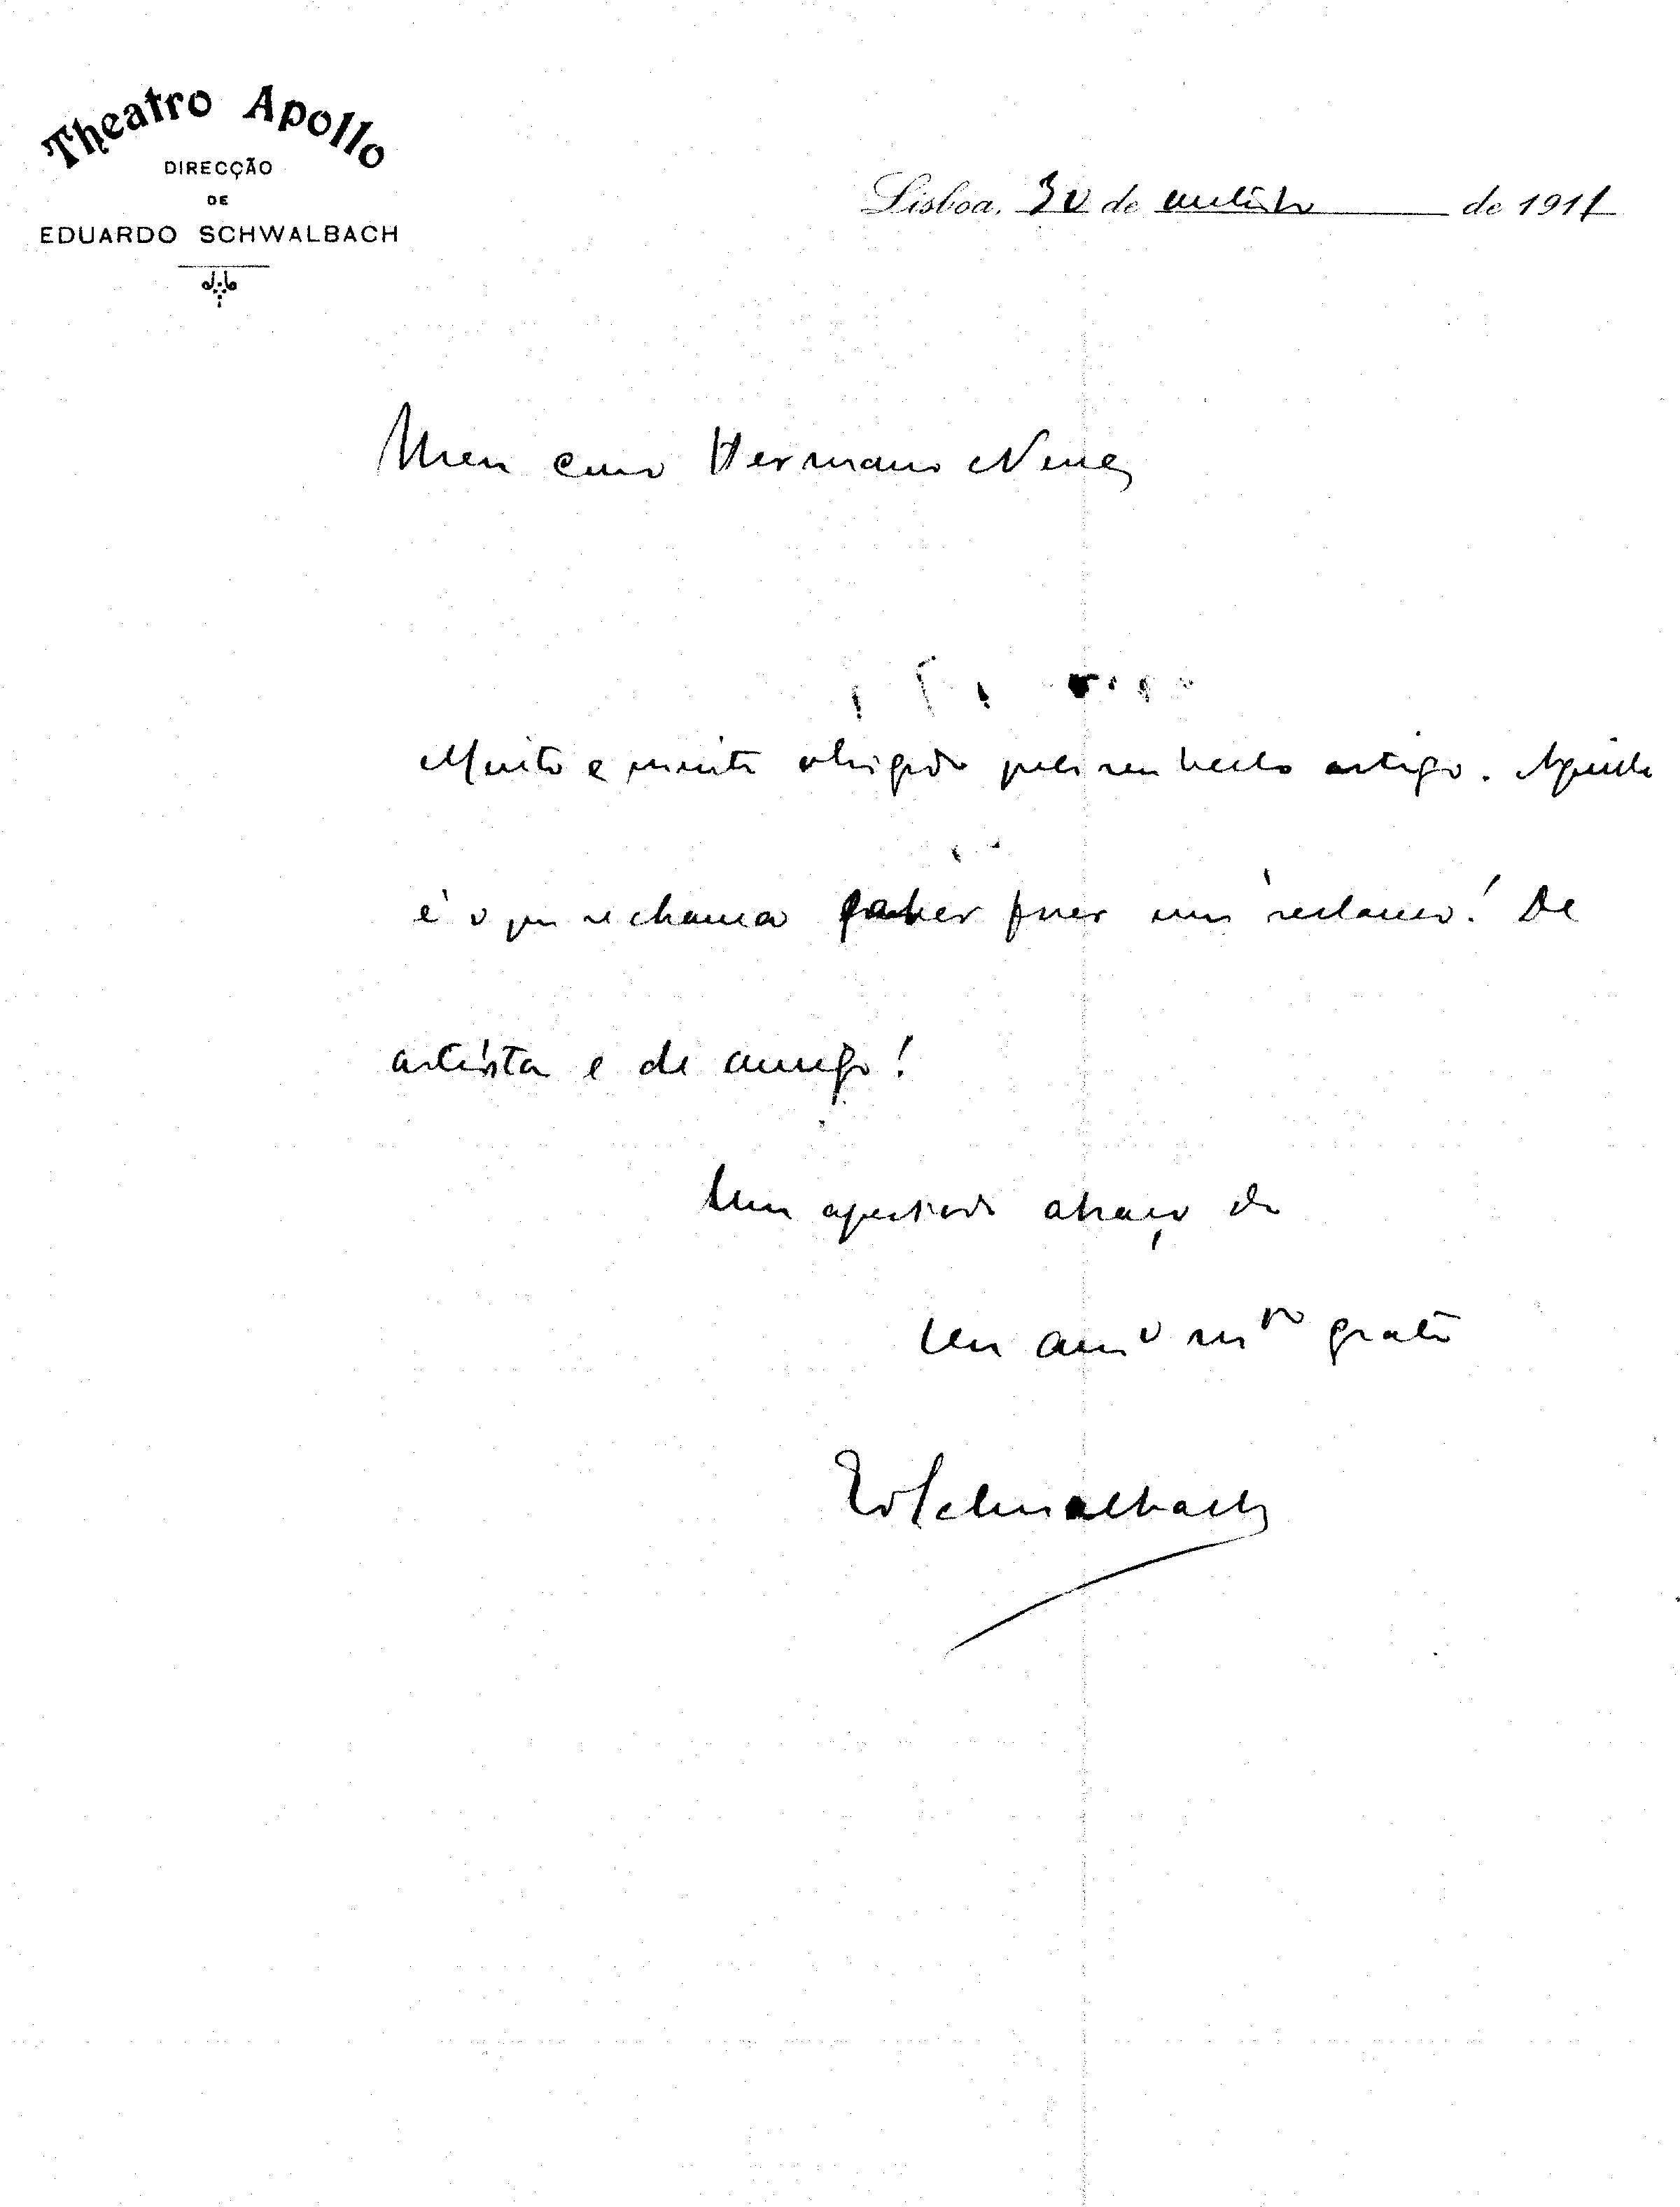 Theatro Apollo
DIRECÇÃO
DE
EDUARDO SCHWALBACH
Lisboa, 30 de outubro de 1911
Meu caro Hermano Neves
Muito e muito obrigado pelo seu bello artigo. Aquillo
é o que se chama saber fazer um reclamo! De
artista e de amigo!
Um apertado abraço do
seu am.o m.to grato
Ed Schwalbach